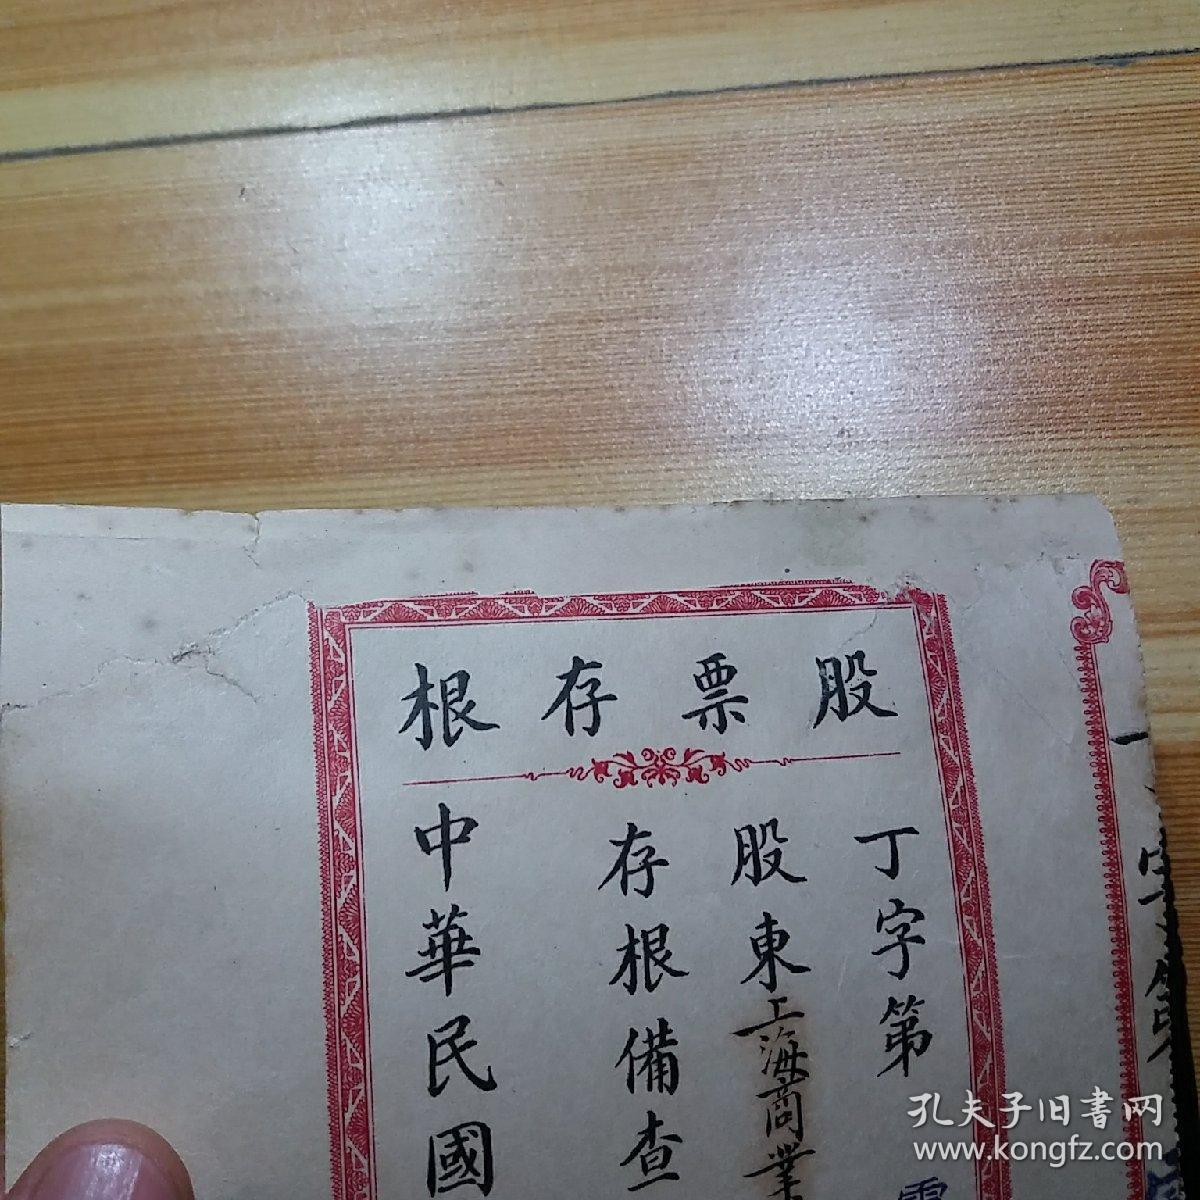 股票存根
丁字第
股東上海商業
存根備查
中華民國
孔夫子旧书网
www.kongfz.com